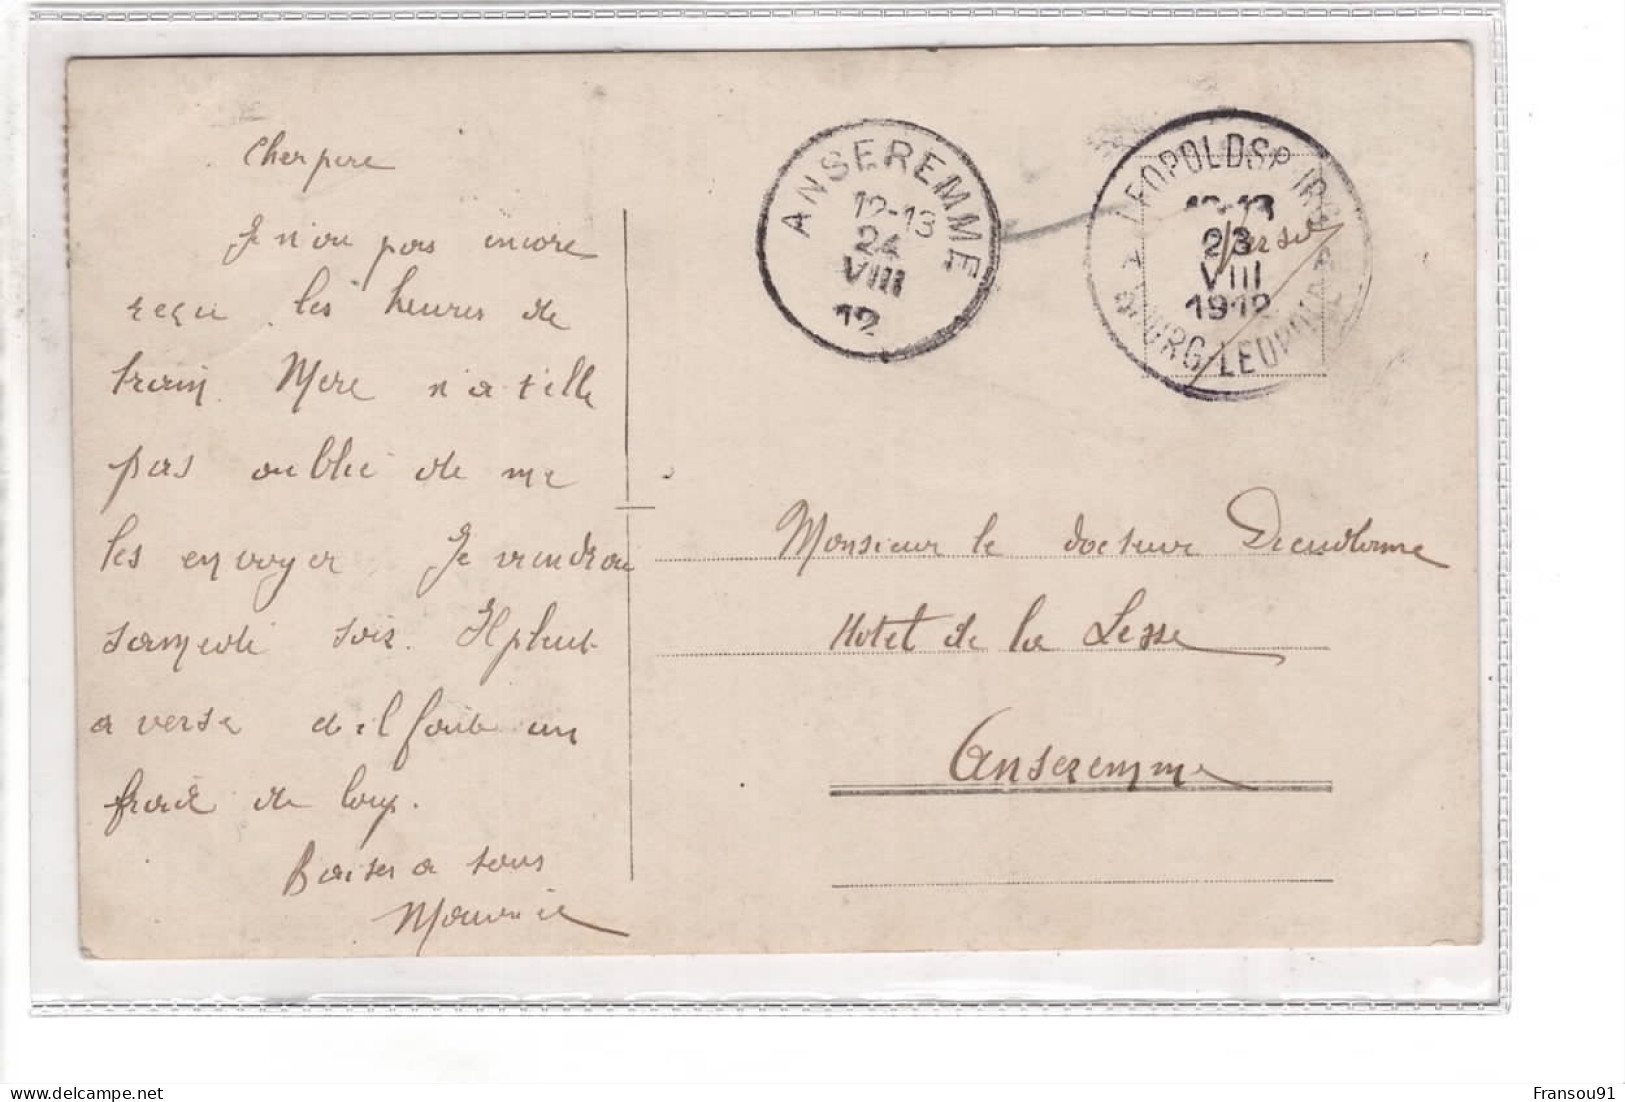 Cher pere
Je n'ai pas encore
reçu les heures de
train. Mere n'a t'elle
pas oublié de me
les envoyer Je viendrai
samedi soir. Il pleut
a verse et il fait un
froid de loup.
Baisers a tous
Maurice
ANSEREMME
12-13
24
VIII
12
LEOPOLDSBURG
12-13
23
VIII
1912
BOURG-LEOPOLD
Verso
Monsieur le docteur
Hotel de la Lesse
Anseremme
Fransou91